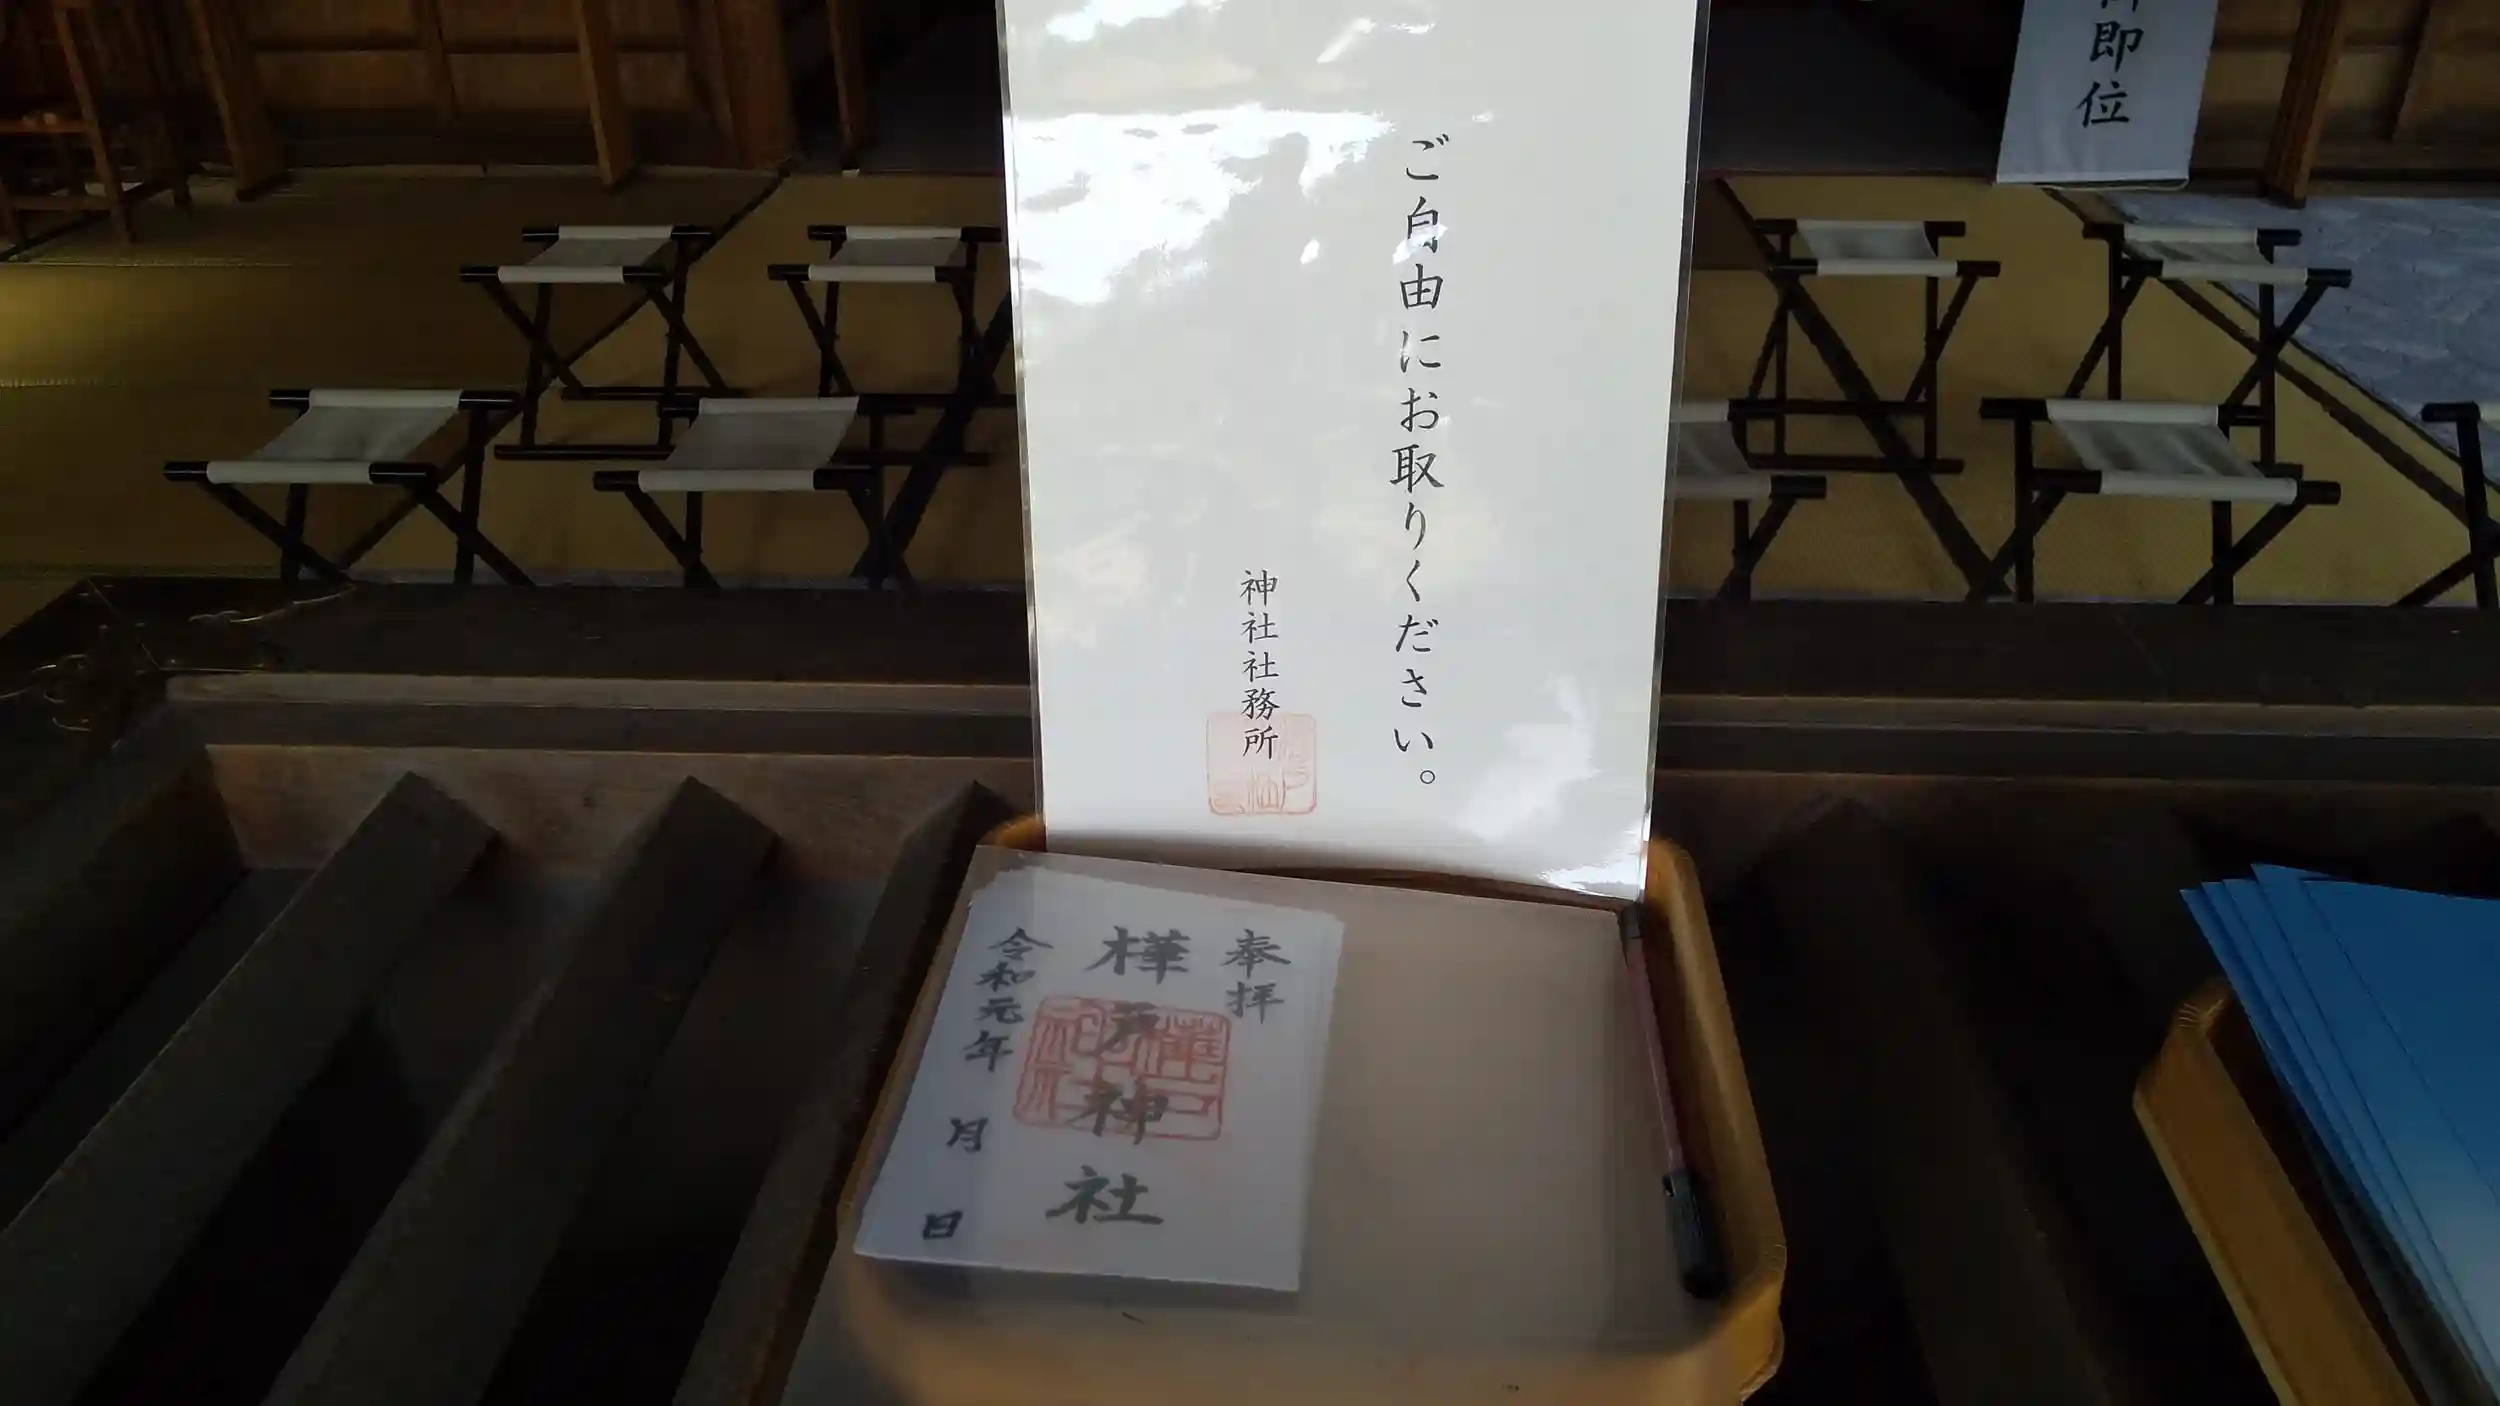 ご自由にお取りください。
神社社務所
即位
奉拝
樺戸神社
令和元年 月 日